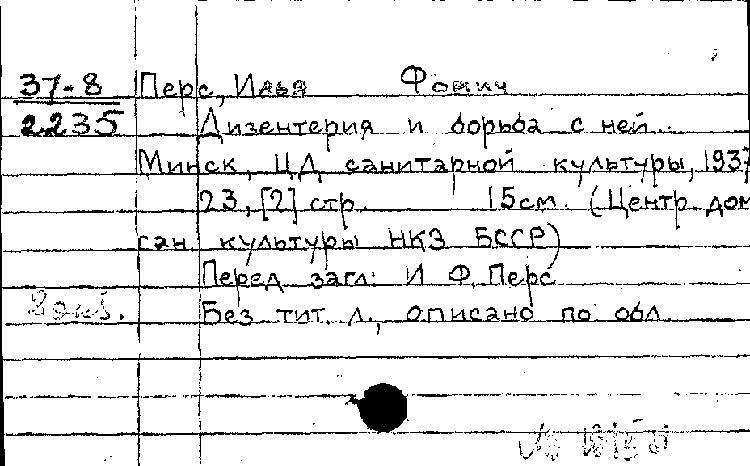 37-8 Перс, Илья Фомич
2235 Дизентерия и борьба с ней.
Минск, ЦД санитарной культуры, 1937
23, [2] стр. 15см. (Центр. дом
сан. культуры НКЗ БССР)
Перед загл: И. Ф. Перс
Без тит. л., описано по обл.